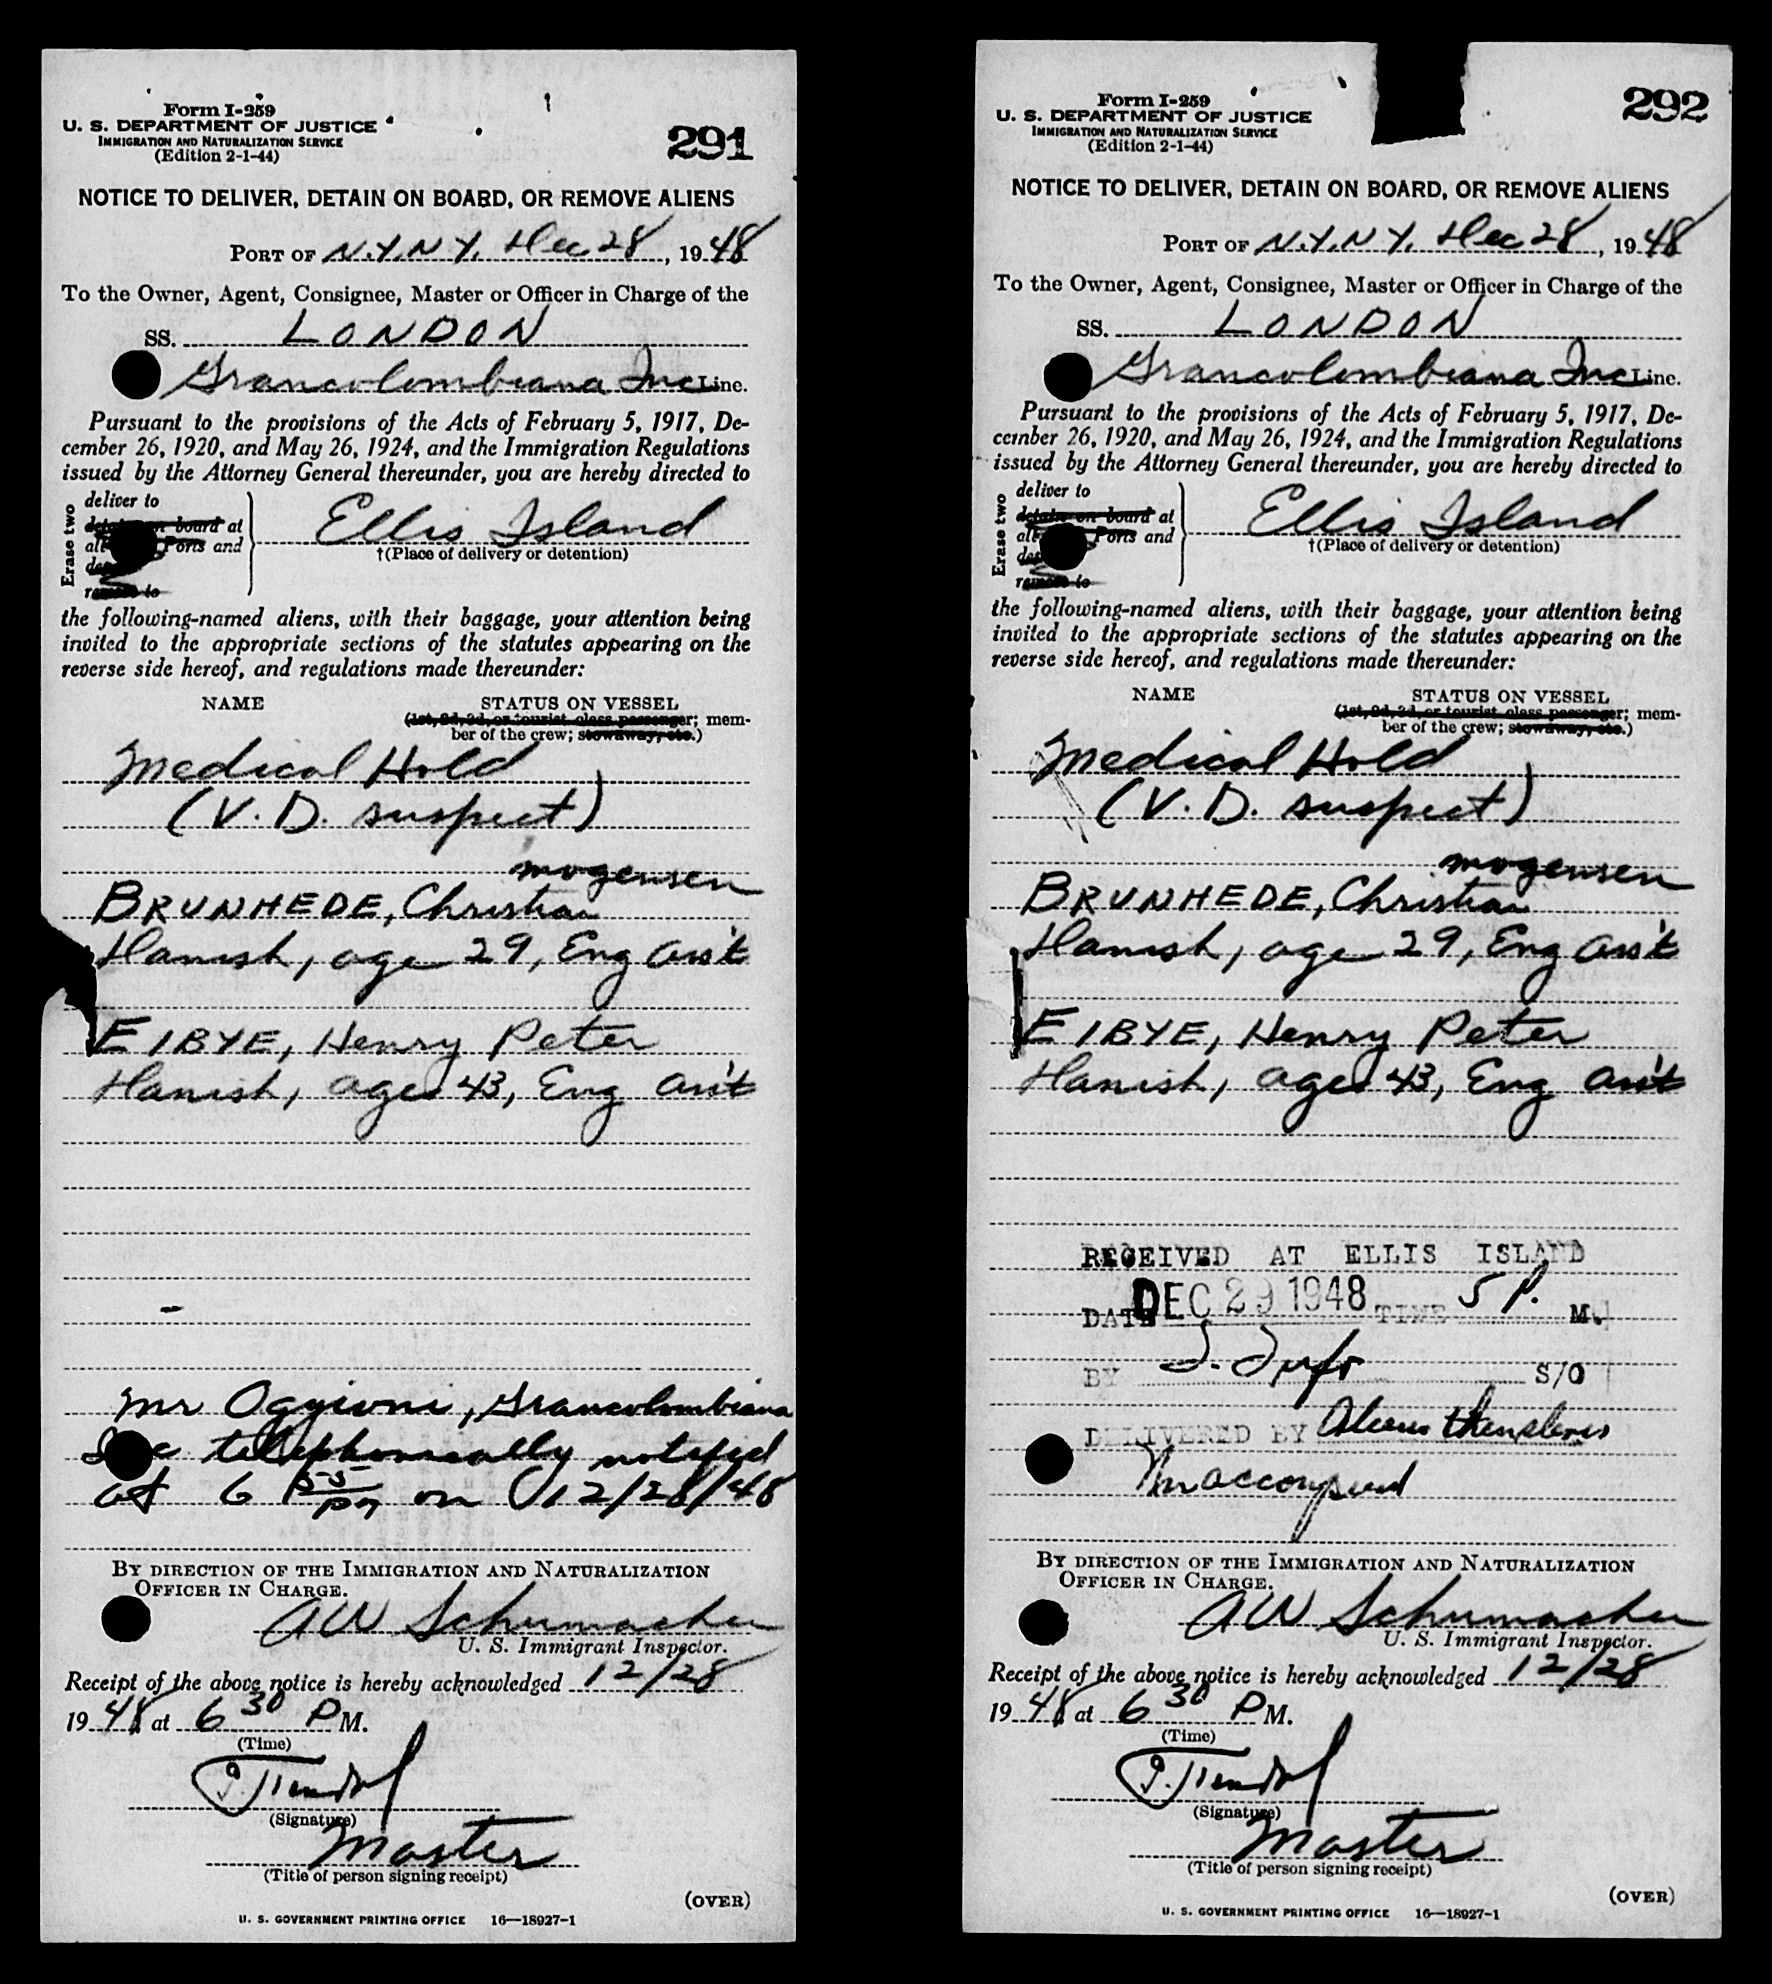 Form I-259
U. S. DEPARTMENT OF JUSTICE
IMMIGRATION AND NATURALIZATION SERVICE
(Edition 2-1-44)
291
NOTICE TO DELIVER, DETAIN ON BOARD, OR REMOVE ALIENS
PORT OF N.Y. N.Y. Dec 28, 1948
To the Owner, Agent, Consignee, Master or Officer in Charge of the
SS. LONDON
Grancolombiana Inc Line.
Pursuant to the provisions of the Acts of February 5, 1917, De-
cember 26, 1920, and May 26, 1924, and the Immigration Regulations
issued by the Attorney General thereunder, you are hereby directed to
Erase two
deliver to
detain on board at
all Ports and
remove to
Ellis Island
†(Place of delivery or detention)
the following-named aliens, with their baggage, your attention being
invited to the appropriate sections of the statutes appearing on the
reverse side hereof, and regulations made thereunder:
NAME STATUS ON VESSEL
(1st, 2d, 3d, or tourist class passenger; mem-
ber of the crew; stowaway, etc.)
Medical Hold
(V.D. suspect)
mogensen
BRUNHEDE, Christian
Danish, age 29, Eng Ass't
EIBYE, Henry Peter
Danish, age 43, Eng Ass't
Mr Oggioni, Grancolombiana
Inc telephonically notified
at 6 55 PM on 12/28/48
BY DIRECTION OF THE IMMIGRATION AND NATURALIZATION
OFFICER IN CHARGE.
AW Schumacher
U. S. Immigrant Inspector.
Receipt of the above notice is hereby acknowledged 12/28
1948 at 6 30 P M.
(Time)
(Signature)
Master
(Title of person signing receipt)
(OVER)
U. S. GOVERNMENT PRINTING OFFICE 16—18927-1
Form I-259
U. S. DEPARTMENT OF JUSTICE
IMMIGRATION AND NATURALIZATION SERVICE
(Edition 2-1-44)
292
NOTICE TO DELIVER, DETAIN ON BOARD, OR REMOVE ALIENS
PORT OF N.Y. N.Y. Dec 28, 1948
To the Owner, Agent, Consignee, Master or Officer in Charge of the
SS. LONDON
Grancolombiana Inc Line.
Pursuant to the provisions of the Acts of February 5, 1917, De-
cember 26, 1920, and May 26, 1924, and the Immigration Regulations
issued by the Attorney General thereunder, you are hereby directed to
Erase two
deliver to
detain on board at
all Ports and
remove to
Ellis Island
†(Place of delivery or detention)
the following-named aliens, with their baggage, your attention being
invited to the appropriate sections of the statutes appearing on the
reverse side hereof, and regulations made thereunder:
NAME STATUS ON VESSEL
(1st, 2d, 3d, or tourist class passenger; mem-
ber of the crew; stowaway, etc.)
Medical Hold
(V.D. suspect)
mogensen
BRUNHEDE, Christian
Danish, age 29, Eng Ass't
EIBYE, Henry Peter
Danish, age 43, Eng Ass't
RECEIVED AT ELLIS ISLAND
DATE DEC 29 1948 TIME 5 P. M.
BY S/O
DELIVERED BY Aliens themselves
Unaccompanied
BY DIRECTION OF THE IMMIGRATION AND NATURALIZATION
OFFICER IN CHARGE.
AW Schumacher
U. S. Immigrant Inspector.
Receipt of the above notice is hereby acknowledged 12/28
1948 at 6 30 P M.
(Time)
(Signature)
Master
(Title of person signing receipt)
(OVER)
U. S. GOVERNMENT PRINTING OFFICE 16—18927-1